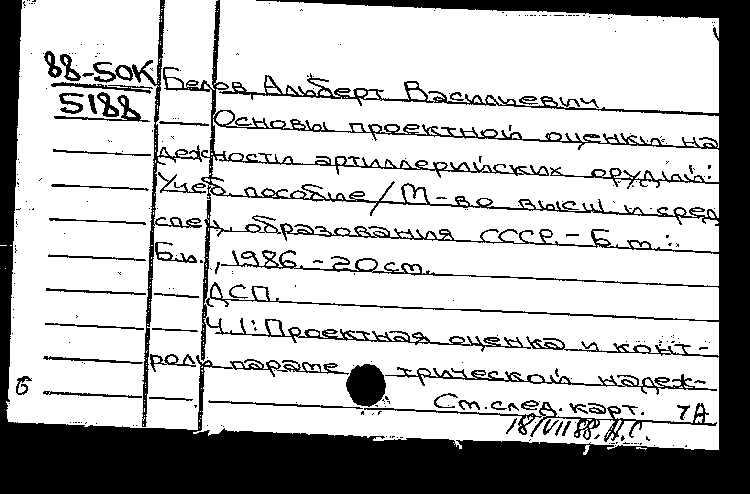 88-50К Белов, Альберт Васильевич.
5188
Основы проектной оценки на
дежности артиллерийских орудий:
Учеб. пособие / М-во высш. и сред
спец. образования СССР. - Б. м.:
Б.и., 1986. - 20 см.
ДСП.
Ч.1: Проектная оценка и конт-
роль параметрической надеж-
См. след. карт. 7А
18/VII 88. А.С.
Б